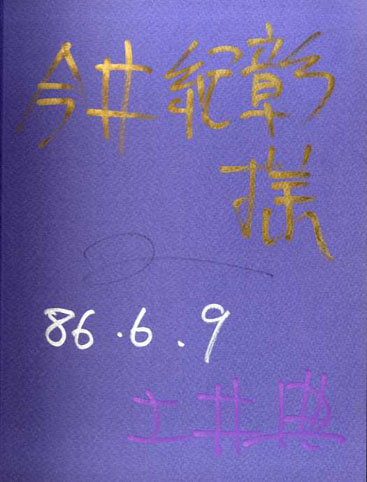 今井紀彰
様
86.6.9
土井典